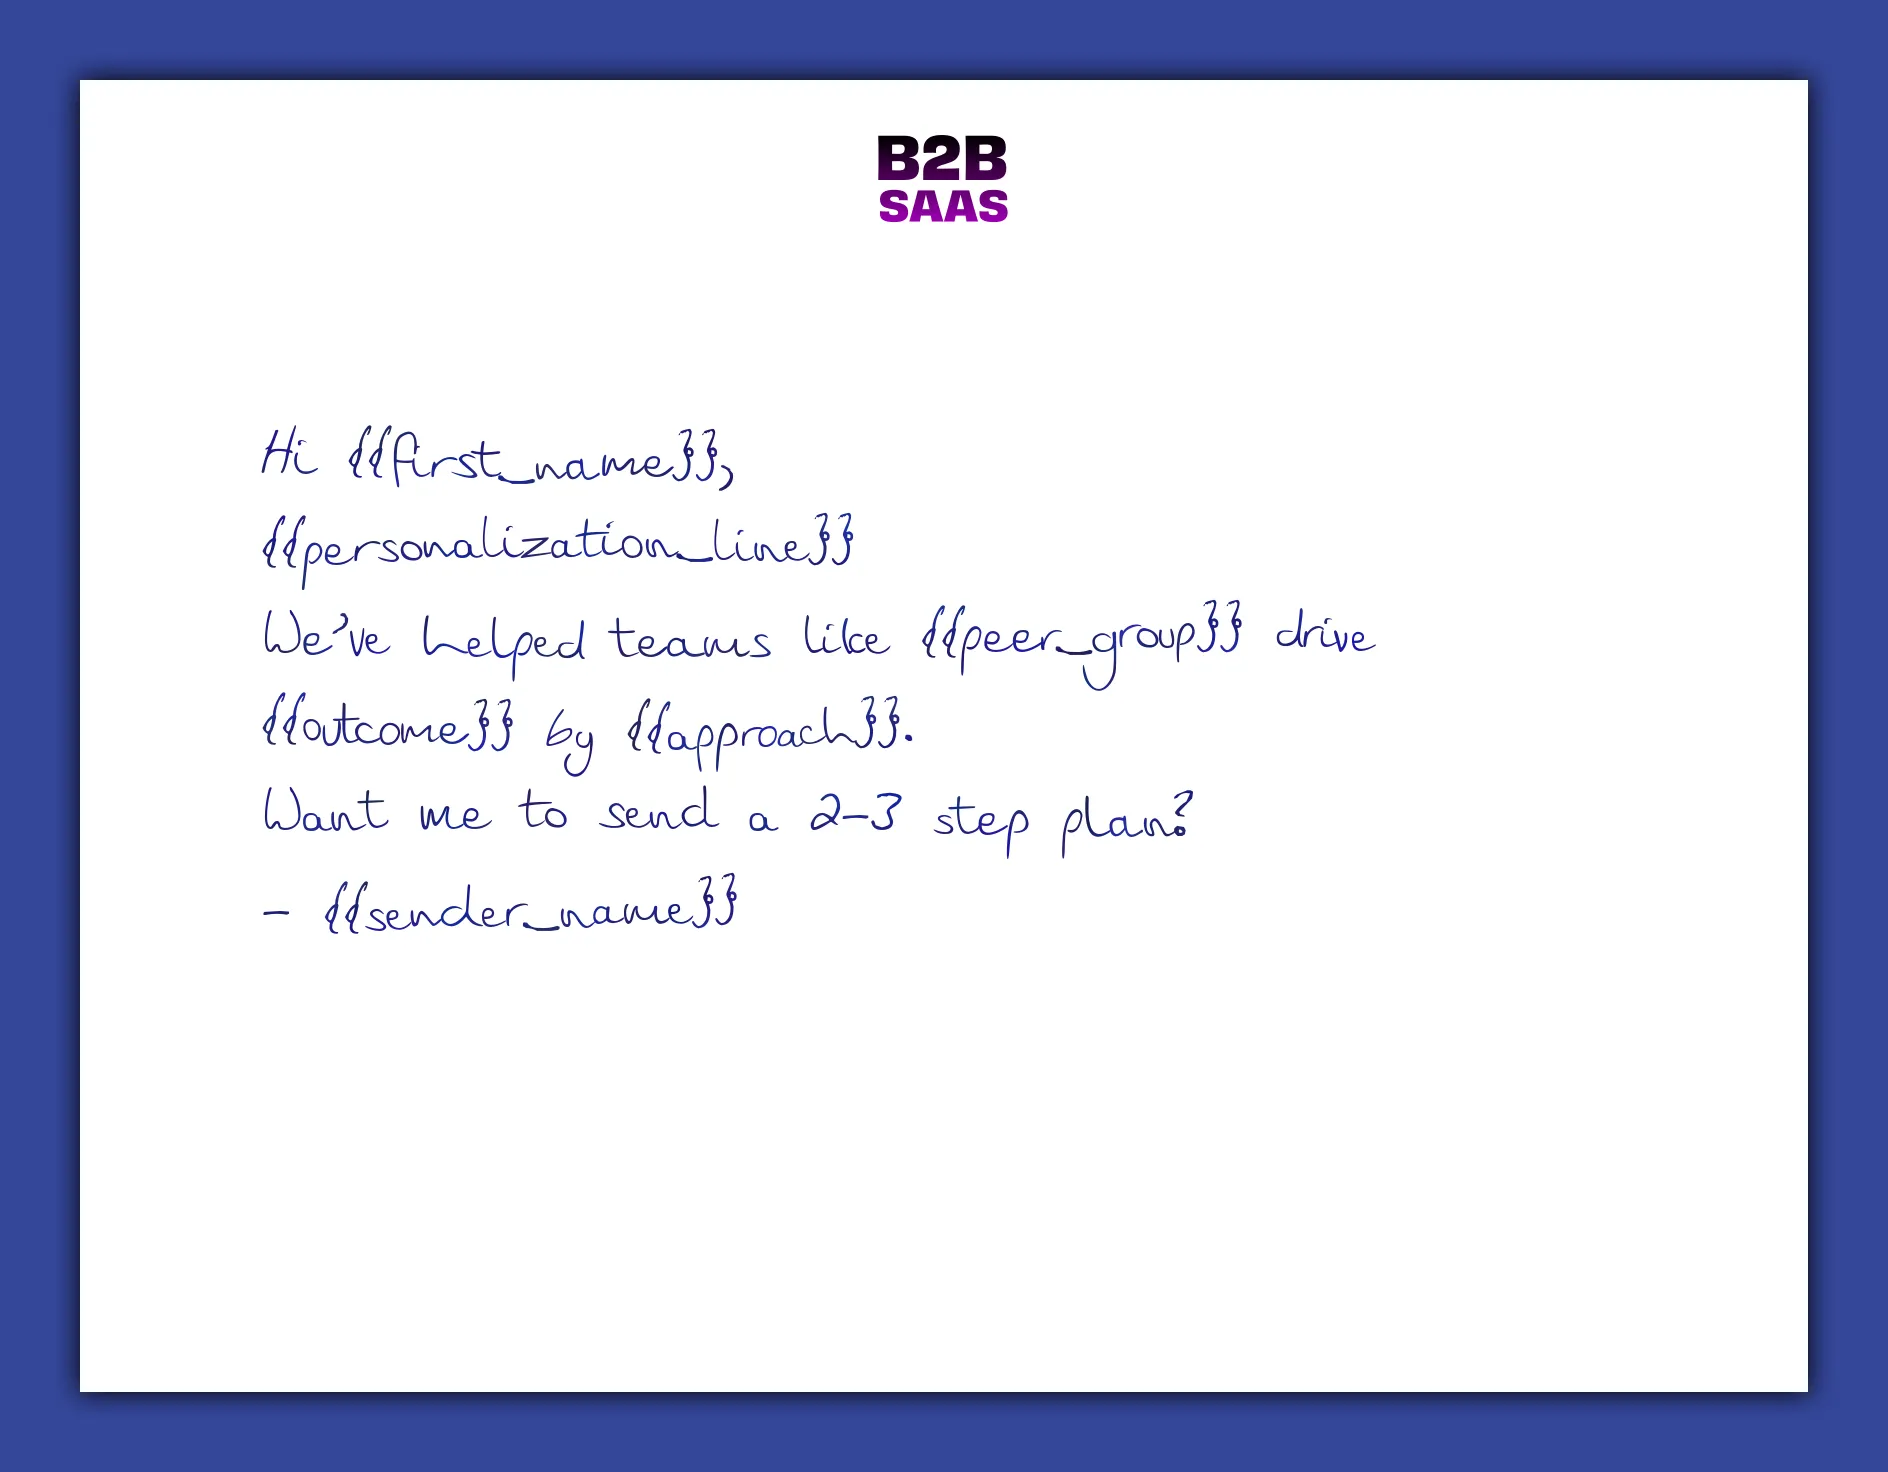 B2B
SAAS
Hi {{first_name}},
{{personalization_line}}
We've helped teams like {{peer_group}} drive
{{outcome}} by {{approach}}.
Want me to send a 2-3 step plan?
- {{sender_name}}